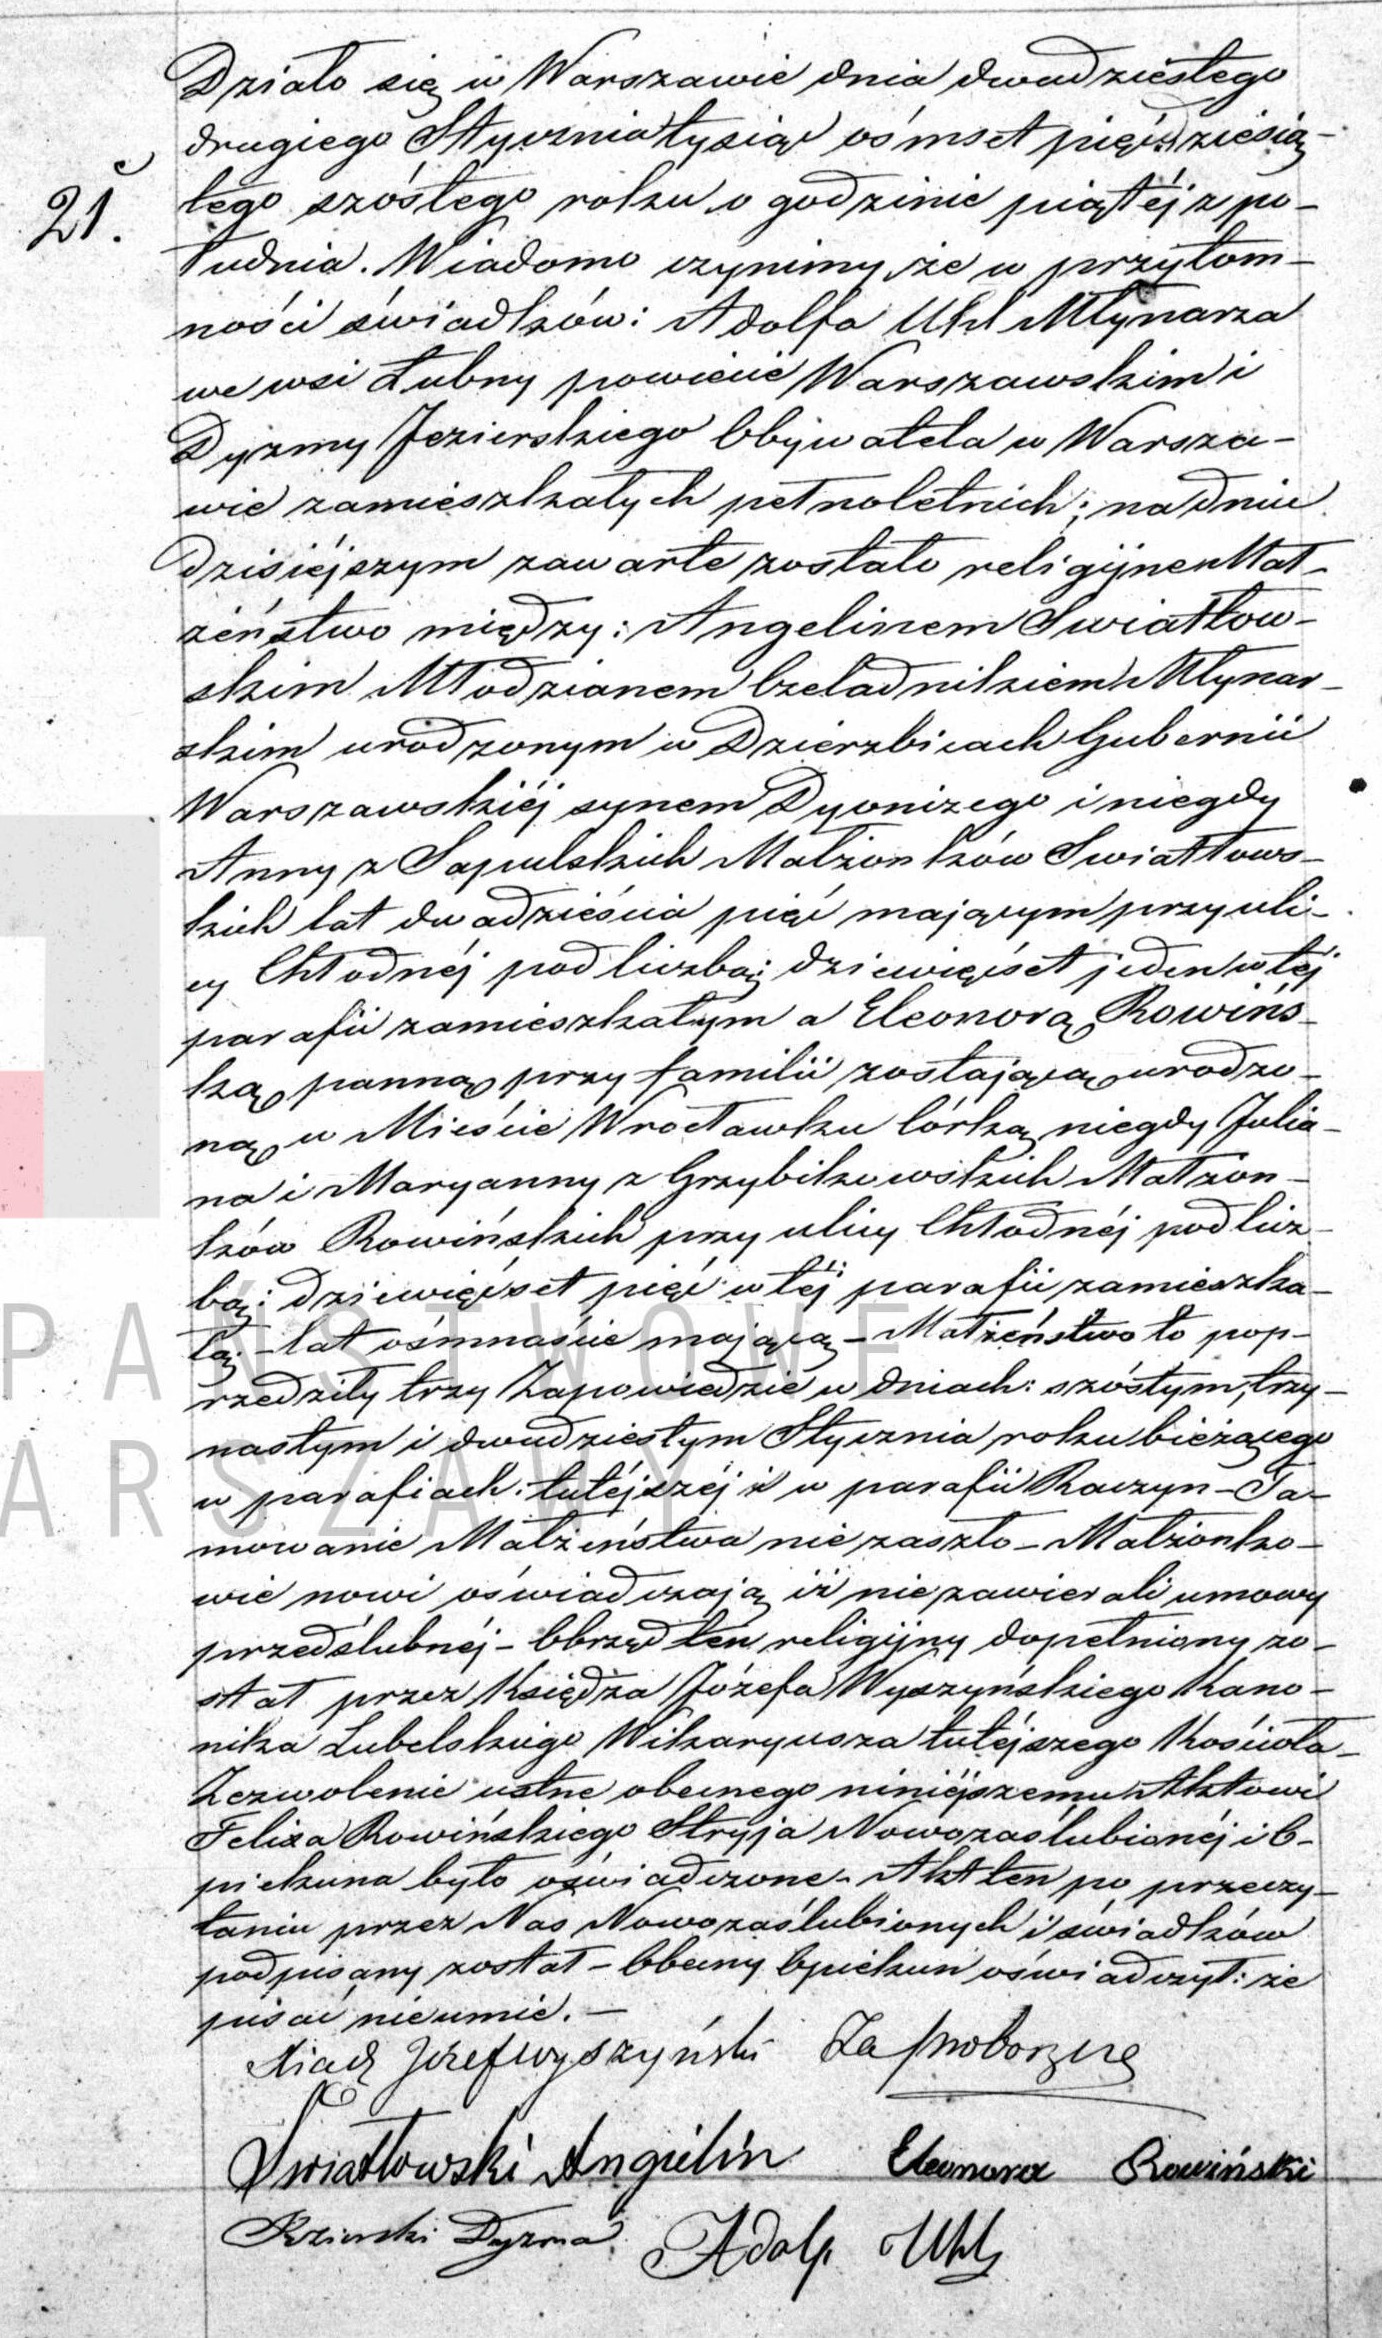 Działo się w Warszawie dnia dwudziestego
drugiego Stycznia tysiąc ośmset pięćdziesią-
21.
tego szóstego roku o godzinie piątéj z po-
łudnia. Wiadomo czynimy, że w przytom-
ności świadków: Adolfa Uhl Młynarza
we wsi Łubny powiecie Warszawskim i
Dyzmy Jezierskiego Obywatela w Warsza-
wie zamieszkałych pełnoletnich; na dniu
dzisiéjszym zawarte zostało religijne Mał-
żeństwo między: Angelinem Swiatłow-
skim Młodzianem Czeladnikiem Młynar-
skim urodzonym w Dzierzbicach Gubernii
Warszawskiéj synem Dyonizego i niegdy
Anny z Sapulskich Małżonków Swiatłows-
kich lat dwadzieścia pięć mającym przy uli-
cy Chłodnéj pod liczbą dziewięćset jeden w téj
parafii zamieszkałym a Eleonorą Rowińs-
ką panną przy familii zostającą urodzo-
ną w Mieście Wrocławku Córką niegdy Julia-
na i Maryanny z Grzybikowskich Małżon-
ków Rowińskich przy ulicy Chłodnéj pod licz-
bą: dziewięćset pięć w téj parafii zamieszka-
łą - lat ośmnaście mającą - Małżeństwo to pop-
rzedziły trzy Zapowiedzie w dniach: szóstym, trzy-
nastym i dwudziestym Stycznia roku bieżącego
w parafiach: tutéjszéj i w parafii Raczyn - Ta-
mowanie Małżeństwa nie zaszło - Małżonko-
wie nowi oświadczają iż nie zawierali umowy
przedślubnéj - Obrząd ten religijny dopełniony zo-
stał przez Księdza Józefa Wyszyńskiego Kano-
nika Lubelskiego Wikaryusza tutéjszego Kościoła -
Zezwolenie ustne obecnego niniéjszemu Aktowi
Felixa Rowińskiego Stryja Nowozaślubionéj i O-
piekuna było oświadczone - Akt ten po przeczy-
taniu przez Nas Nowozaślubionych i świadków
podpisany został - Obecny Opiekun oświadczył: że
pisać nieumie. -
Xiądz Józef Wyszyński Za Proboszcza
Swiatłowski Angielin Eleonora Rowiński
Jezierski Dyzma Adolf Uhl
PAŃSTWOWE
ARSZAWY